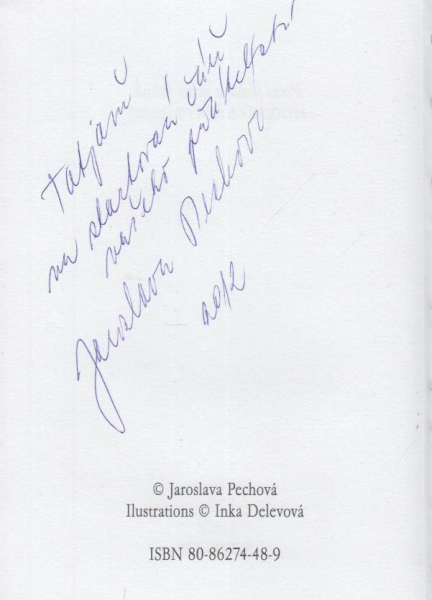 Tatjaně
na startovací čáře
našeho přátelství
Jaroslava Pechová
2012
© Jaroslava Pechová
Ilustrations © Inka Delevová
ISBN 80-86274-48-9